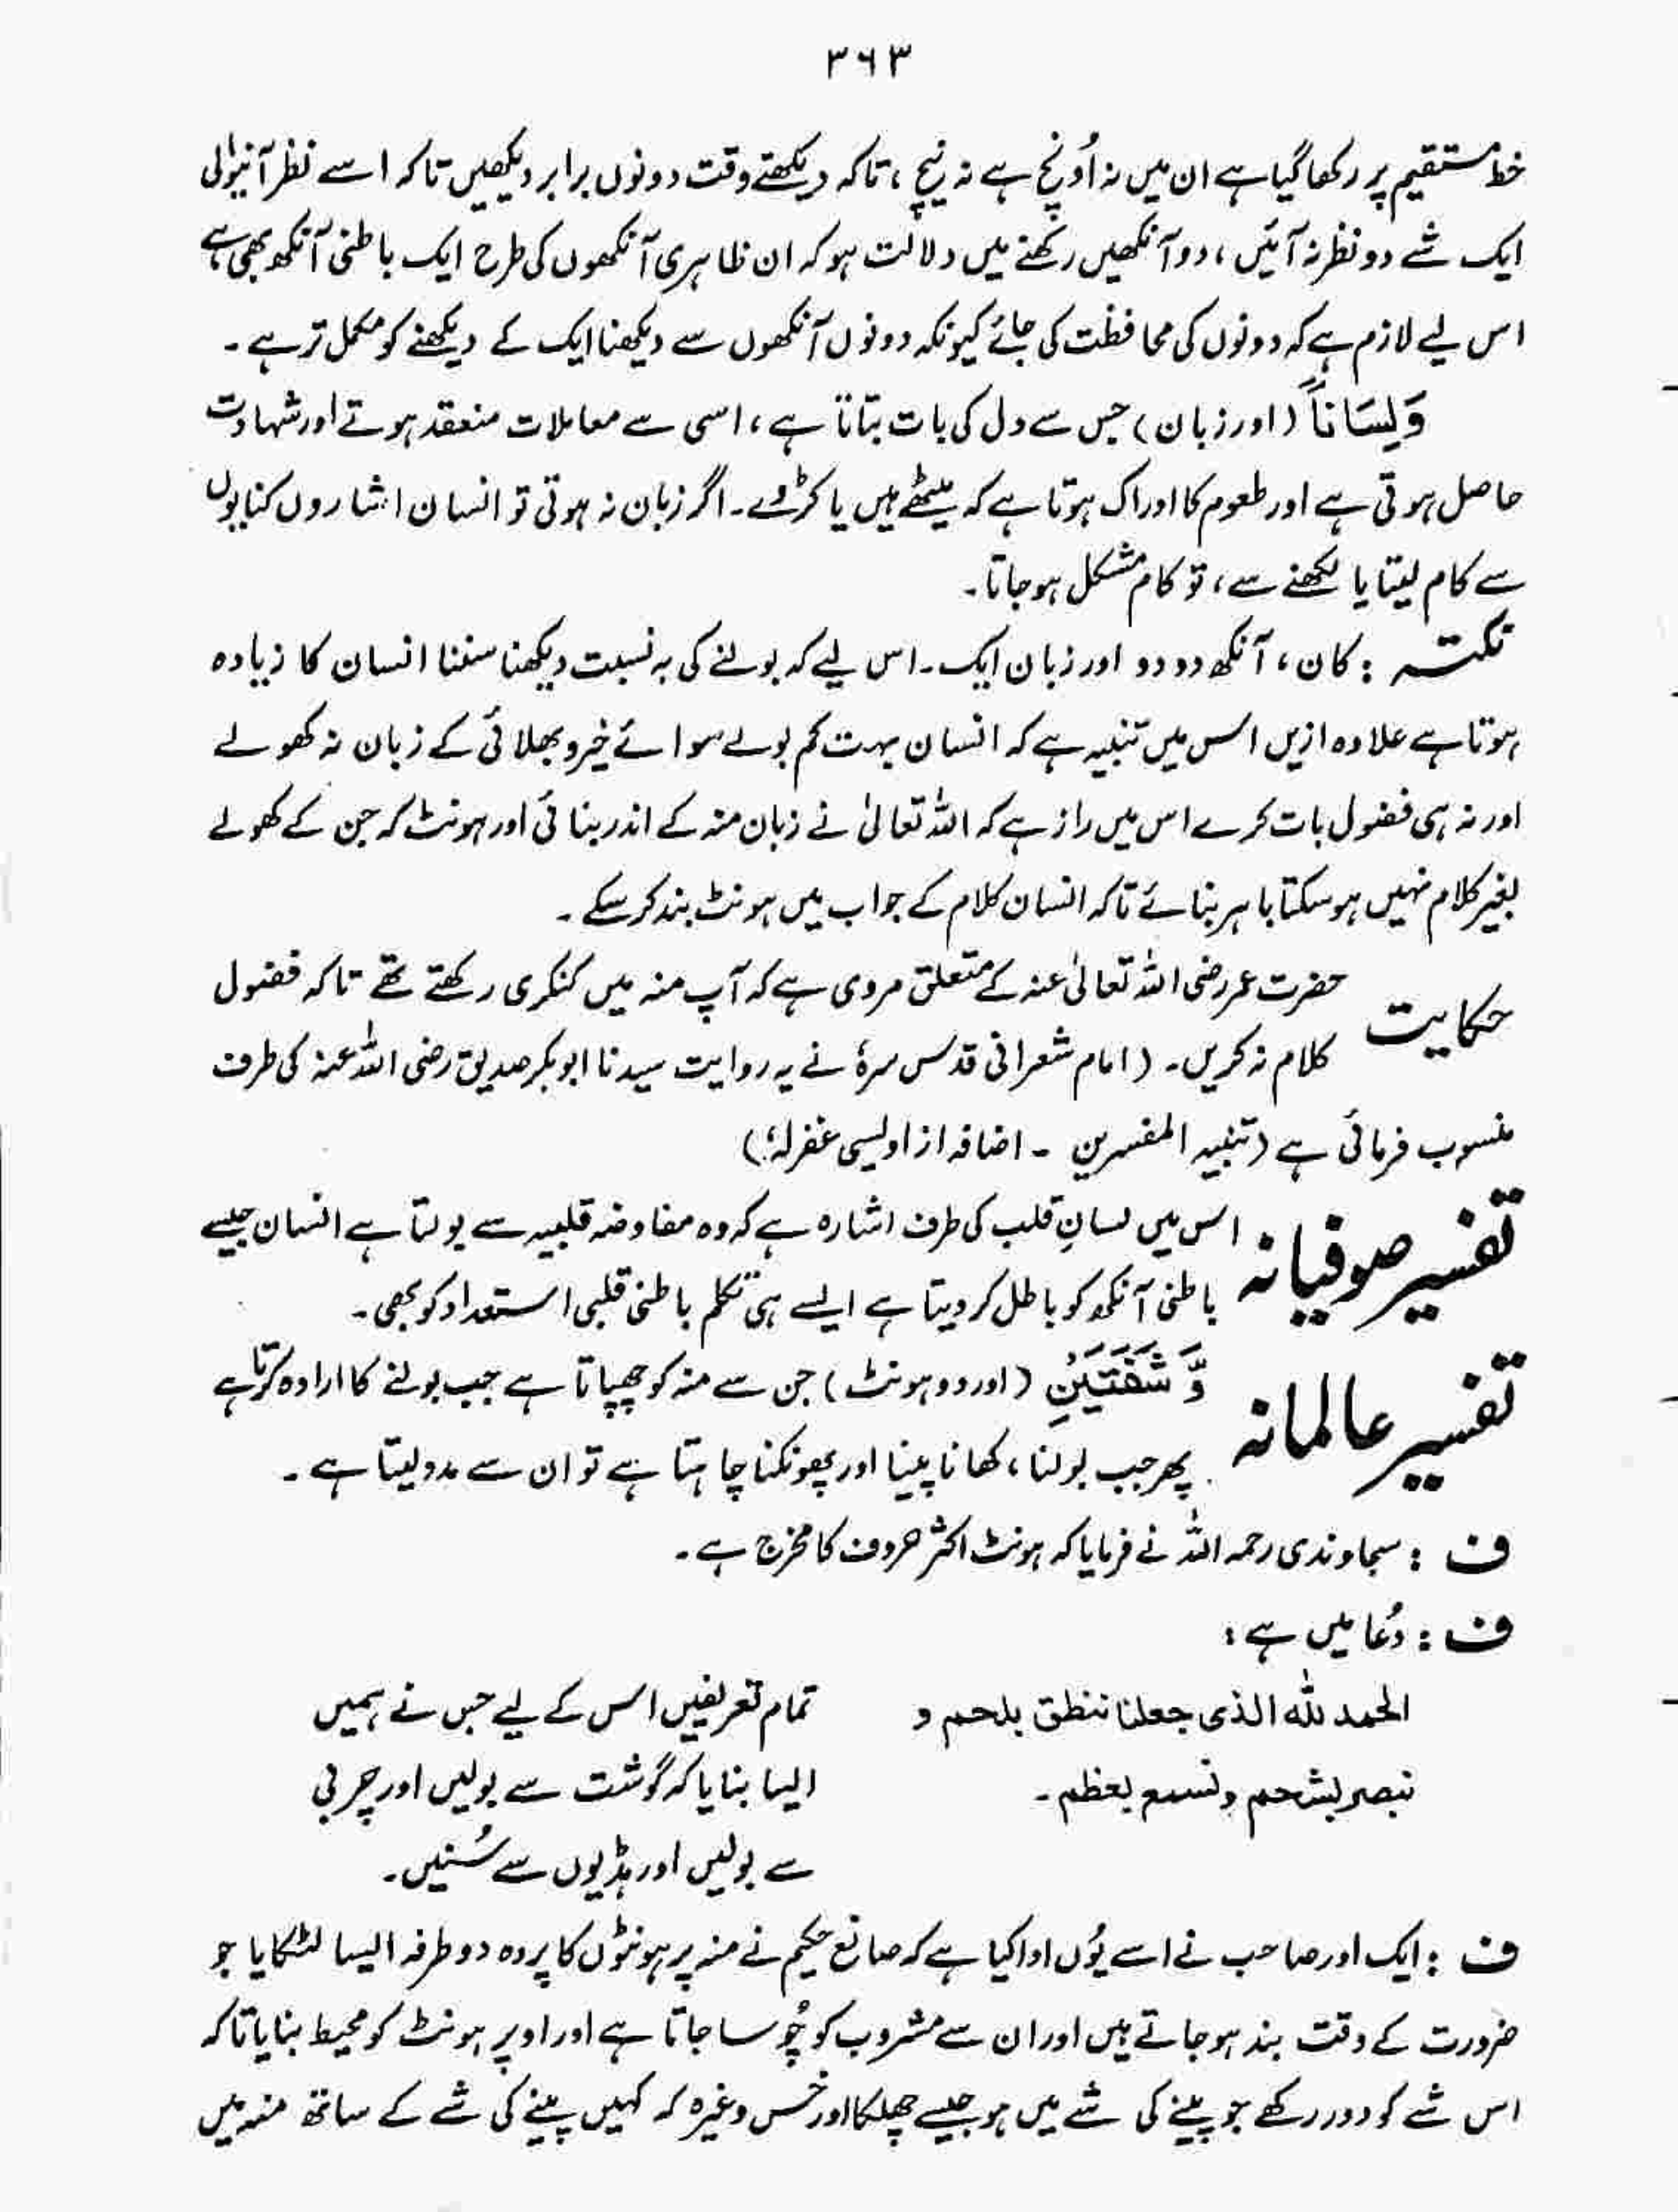 ۳۶۳
خط مستقیم پر رکھا گیا ہے ان میں نہ اُونچ ہے نہ نیچ ، تاکہ دیکھتے وقت دونوں برابر دیکھیں تاکہ اسے نظر آنیوالی
ایک شے دو نظر نہ آئیں ، دو آنکھیں رکھنے میں دلالت ہو کہ ان ظاہری آنکھوں کی طرح ایک باطنی آنکھ بھی ہے
اس لیے لازم ہے کہ دونوں کی محافظت کی جائے کیونکہ دونوں آنکھوں سے دیکھنا ایک کے دیکھنے کو مکمل تر ہے ۔
وَلِسَاناً (اور زبان) جس سے دل کی بات بتاتا ہے ، اسی سے معاملات منعقد ہوتے اور شہادت
حاصل ہوتی ہے اور طعوم کا ادراک ہوتا ہے کہ میٹھے ہیں یا کڑوے ۔ اگر زبان نہ ہوتی تو انسان اشاروں کنایوں
سے کام لیتا یا لکھنے سے ، تو کام مشکل ہو جاتا ۔
نکتہ : کان ، آنکھ دو دو اور زبان ایک ۔ اس لیے کہ بولنے کی بہ نسبت دیکھنا سننا انسان کا زیادہ
ہوتا ہے علاوہ ازیں اس میں تنبیہ ہے کہ انسان بہت کم بولے سوائے خیر و بھلائی کے زبان نہ کھولے
اور نہ ہی فضول بات کرے اس میں راز ہے کہ اللہ تعالیٰ نے زبان منہ کے اندر بنائی اور ہونٹ کہ جن کے کھولے
بغیر کلام نہیں ہو سکتا باہر بنائے تاکہ انسان کلام کے جواب میں ہونٹ بند کر سکے ۔
حکایت حضرت عمر رضی اللہ تعالیٰ عنہ کے متعلق مروی ہے کہ آپ منہ میں کنکری رکھتے تھے تاکہ فضول
کلام نہ کریں ۔ (امام شعرانی قدس سرہٗ نے یہ روایت سیدنا ابوبکر صدیق رضی اللہ عنہ کی طرف
منسوب فرمائی ہے (تنبیہ المفسرین ۔ اضافہ از اویسی غفرلہٗ)
تفسیر صوفیانہ اس میں لسانِ قلب کی طرف اشارہ ہے کہ وہ مفاوضہ قلبیہ سے بولتا ہے انسان جیسے
باطنی آنکھ کو باطل کر دیتا ہے ایسے ہی تکلم باطنی قلبی استعداد کو بھی ۔
تفسیر عالمانہ وَّ شَفَتَیْنِ (اور دو ہونٹ) جن سے منہ کو چھپاتا ہے جب بولنے کا ارادہ کرتا ہے
پھر جب بولنا ، کھانا پینا اور پھونکنا چاہتا ہے تو ان سے مدد لیتا ہے ۔
ف : سجاوندی رحمہ اللہ نے فرمایا کہ ہونٹ اکثر حروف کا مخرج ہے ۔
ف : دُعا میں ہے :
الحمد للہ الذی جعلنا ننطق بلحم و
نبصر بشحم ونسمع بعظم ۔
تمام تعریفیں اس کے لیے جس نے ہمیں
ایسا بنایا کہ گوشت سے بولیں اور چربی
سے بولیں اور ہڈیوں سے سُنیں ۔
ف : ایک اور صاحب نے اسے یُوں ادا کیا ہے کہ صانع حکیم نے منہ پر ہونٹوں کا پردہ دو طرفہ ایسا لٹکایا جو
ضرورت کے وقت بند ہو جاتے ہیں اور ان سے مشروب کو چُوسا جاتا ہے اور اوپر ہونٹ کو محیط بنایا تاکہ
اس شے کو دور رکھے جو پینے کی شے میں ہو جیسے چھلکا اور خس وغیرہ کہ کہیں پینے کی شے کے ساتھ منہ میں